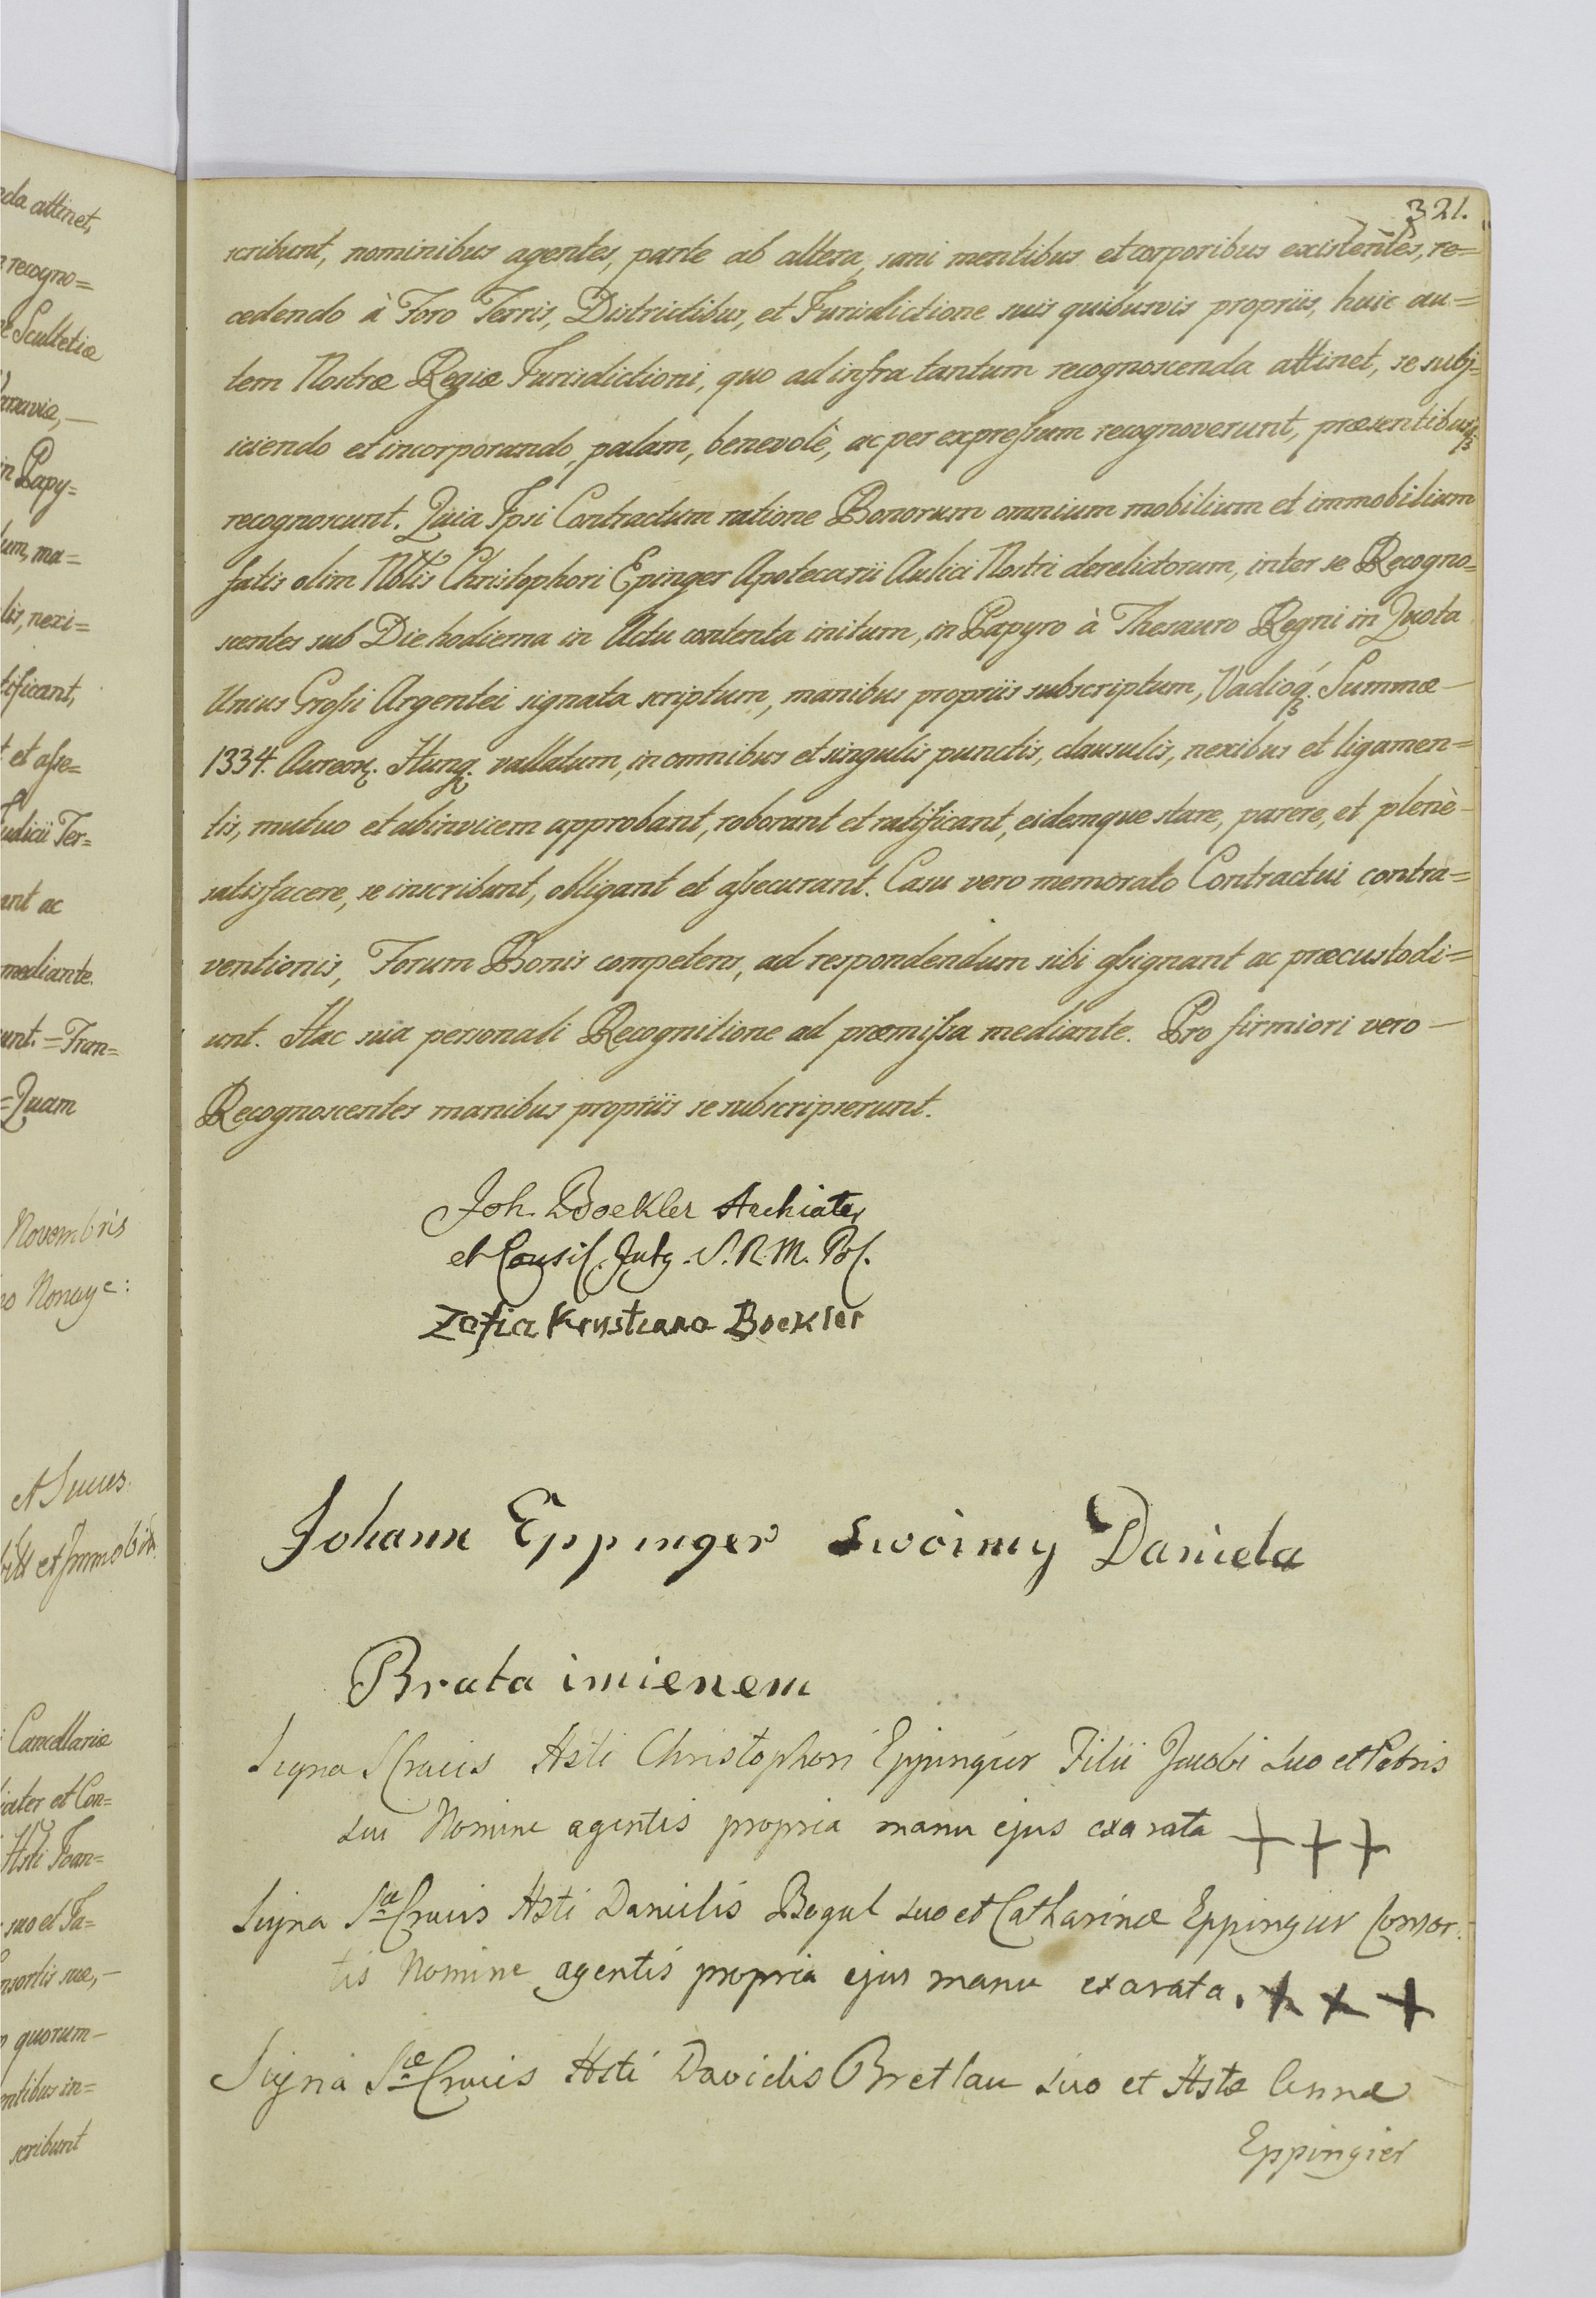 eda attinet,
recogno=
Scultetiæ
in Papy=
lum, ma=
lis, nexi=
tificant,
et asse=
udicii Ter=
ant ac
mediante.
unt. = Fran=
= Quam
Novembris
Cancellariæ
iater et Con=
Hsti Joan=
suo et Ja=
nsortis suæ, —
quorum —
entibus in=
scribunt
321.
scribunt, nominibus agentes, parte ab altera, sani mentibus et corporibus existentes, re=
cedendo à Foro Terris, Districtibus, et Jurisdictione suis quibusvis propriis, huic au=
tem Nostræ Regiæ Jurisdictioni, quo ad infra tantum recognoscenda attinet, se subj=
iciendo et incorporando, palam, benevolè, ac per expressum recognoverunt, præsentibusq́ꝫ
recognoscunt. Quia Ipsi Contractum ratione Bonorum omnium mobilium et immobilium
fatis olim Nblis Christophori Epinger Apotecarii Aulici Nostri derelictorum, inter se Recogno=
scentes sub Die hodierna in Actu contenta initum, in Papyro à Thesauro Regni in Quota
Unius Grossi Argentei signata scriptum, manibus propriis subscriptum, Vadioq́ꝫ Summæ —
1334. Aureoꝝ. Hung. vallatum, in omnibus et singulis punctis, clausulis, nexibus et ligamen=
tis, mutuo et abinvicem approbant, roborant et ratificant, eidemque stare, parere, et plenè —
satisfacere, se inscribunt, obligant et assecurant. Casu vero memorato Contractui contra=
ventionis, Forum Bonis competens, ad respondendum sibi assignant ac præcustodi=
unt. Hac sua personali Recognitione ad præmissa mediante. Pro firmiori vero —
Recognoscentes manibus propriis se subscripserunt.
Joh. Boekler Archiater
et Consil. Intg. S. R. M. Pol.
Zofia Krystiana Boekler
Johann Eppinger Swoimy Daniela
Brata imienem
Signa S Crucis Hsti Christophori Eppingier Filii Jacobi suo et Patris
sui Nomine agentis propria manu ejus exarata + + +
Signa Stæ Crucis Hsti Danielis Begul suo et Catharinæ Eppingier Consor=
tis Nomine agentis propria ejus manu exarata. + + +
Signa Stæ Crucis Hsti Davidis Bretlau suo et Hstæ Annæ
Eppingier